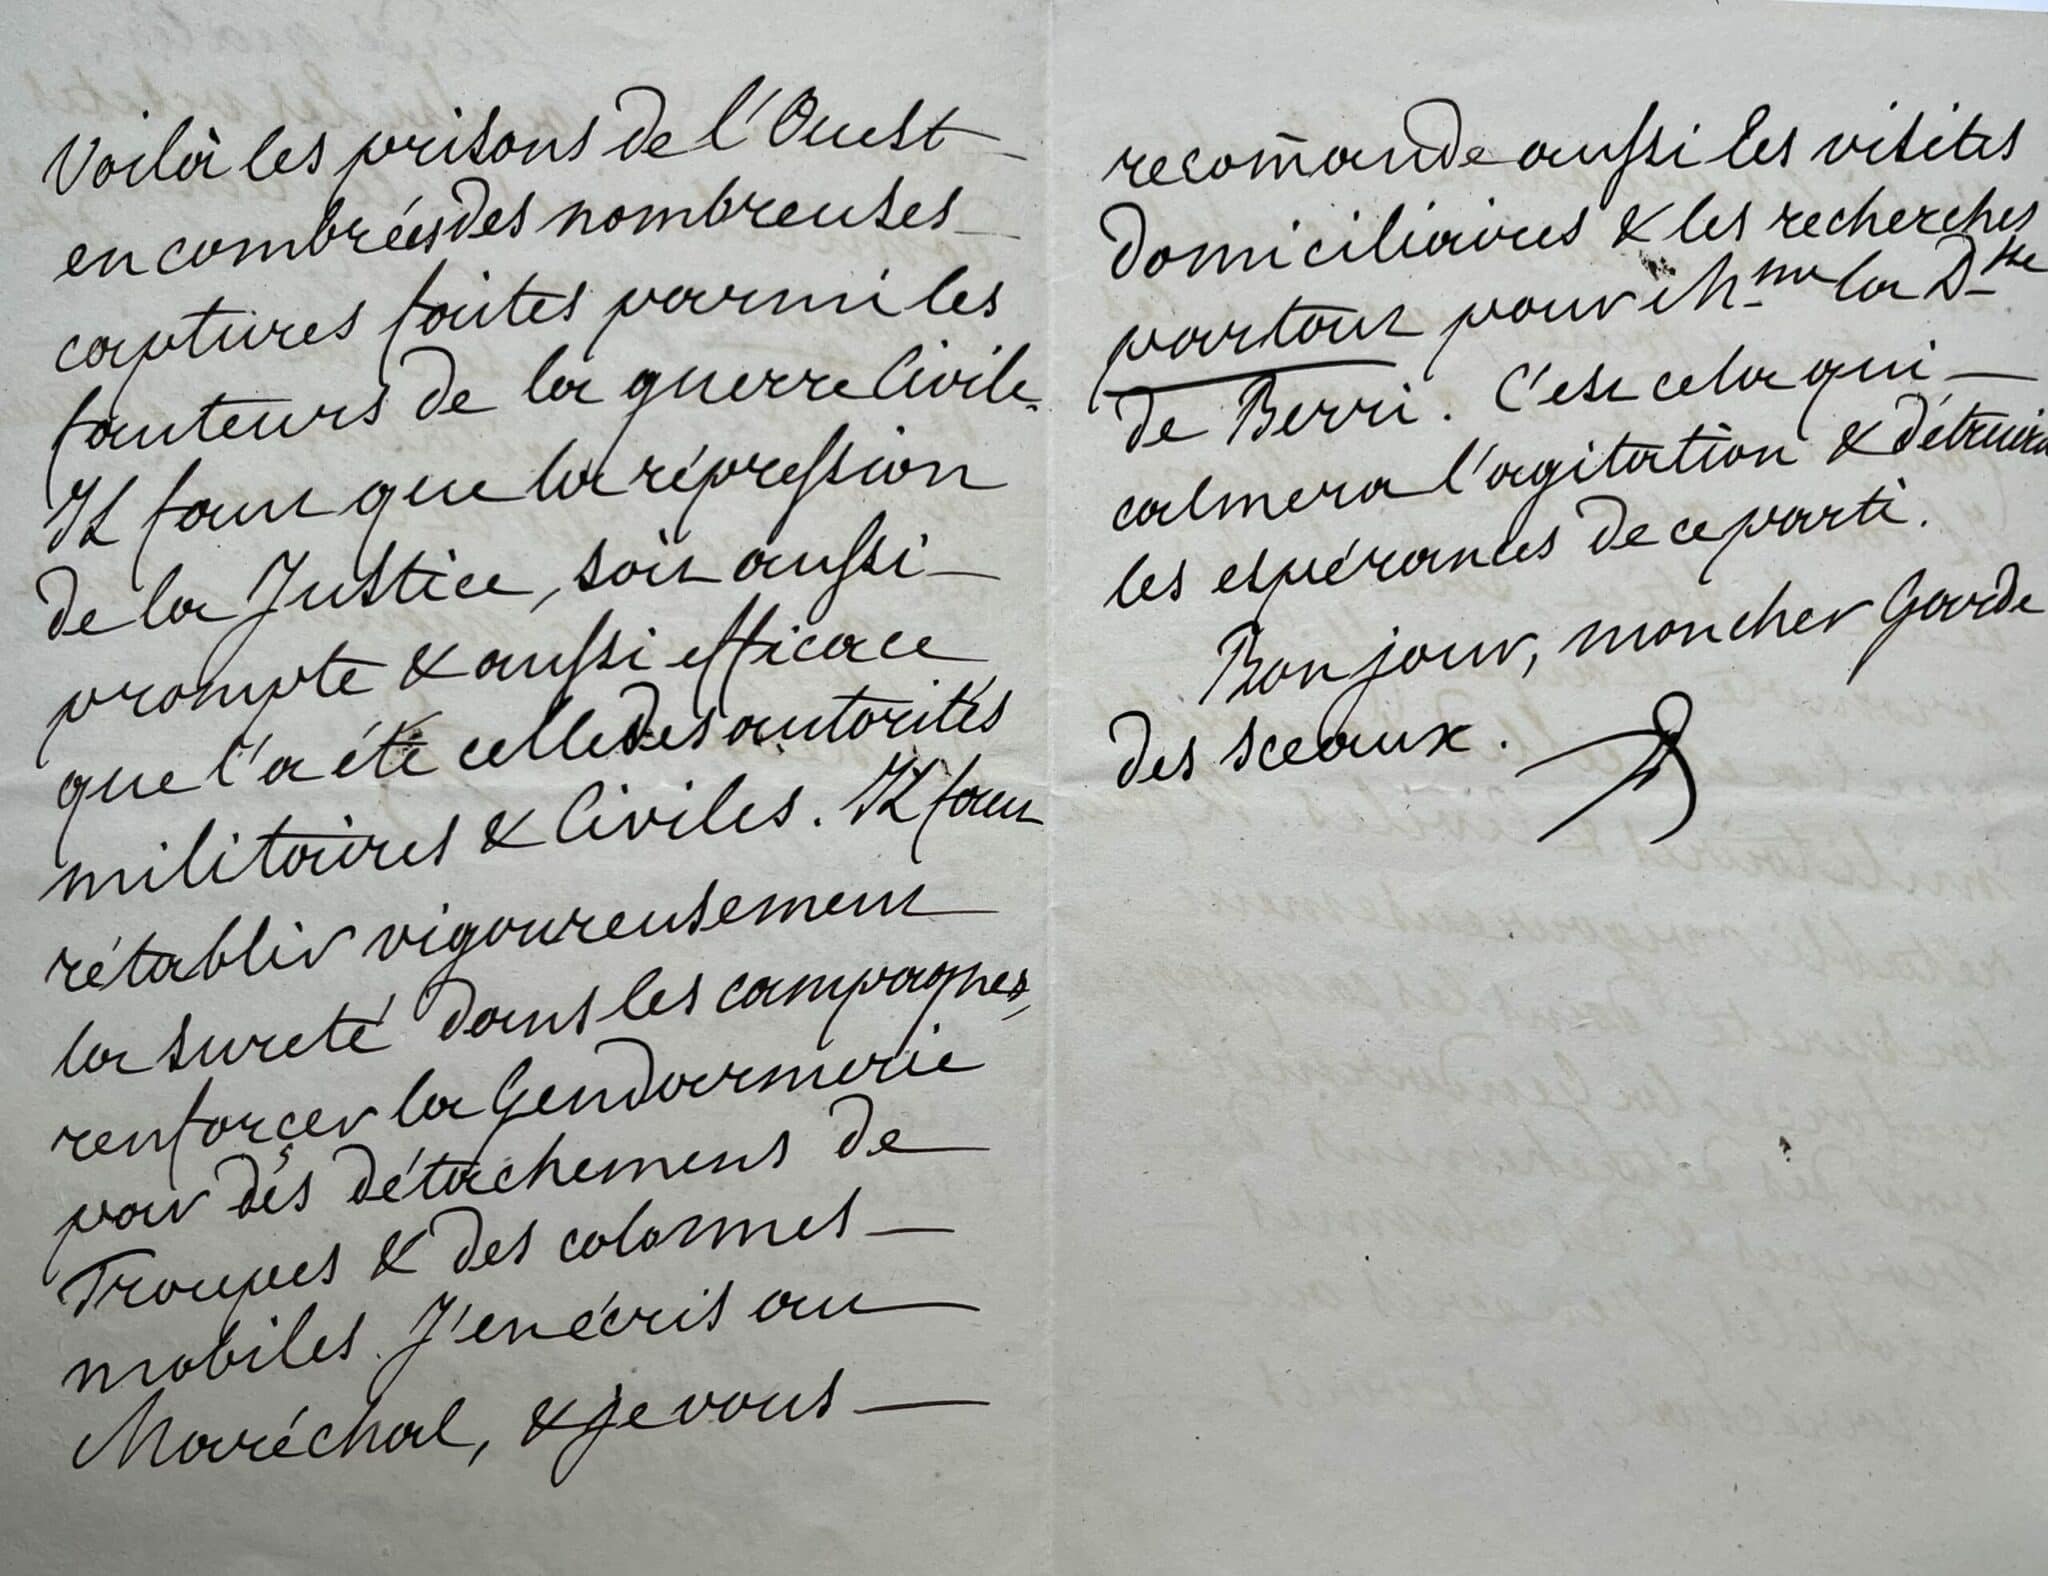 Voilà les prisons de l'Ouest
encombrées des nombreuses
captures faites parmi les
fauteurs de la guerre Civile.
Il faut que la répression
de la Justice, soit aussi
prompte & aussi efficace
que l'a été celle des autorités
militaires & Civiles. Il faut
rétablir vigoureusement
la sureté dans les campagnes,
renforçer la Gendarmerie
par dés détachemens de
Troupes & des colonnes
mobiles. J'en écris au
Maréchal, & je vous
recom̄ande aussi les visites
domiciliaires & les recherches
partout pour Mme la Dsse
de Berri. C'est cela qui
calmera l'agitation & détruira
les espérances de ce parti.
Bonjour, mon cher Garde
des sceaux.